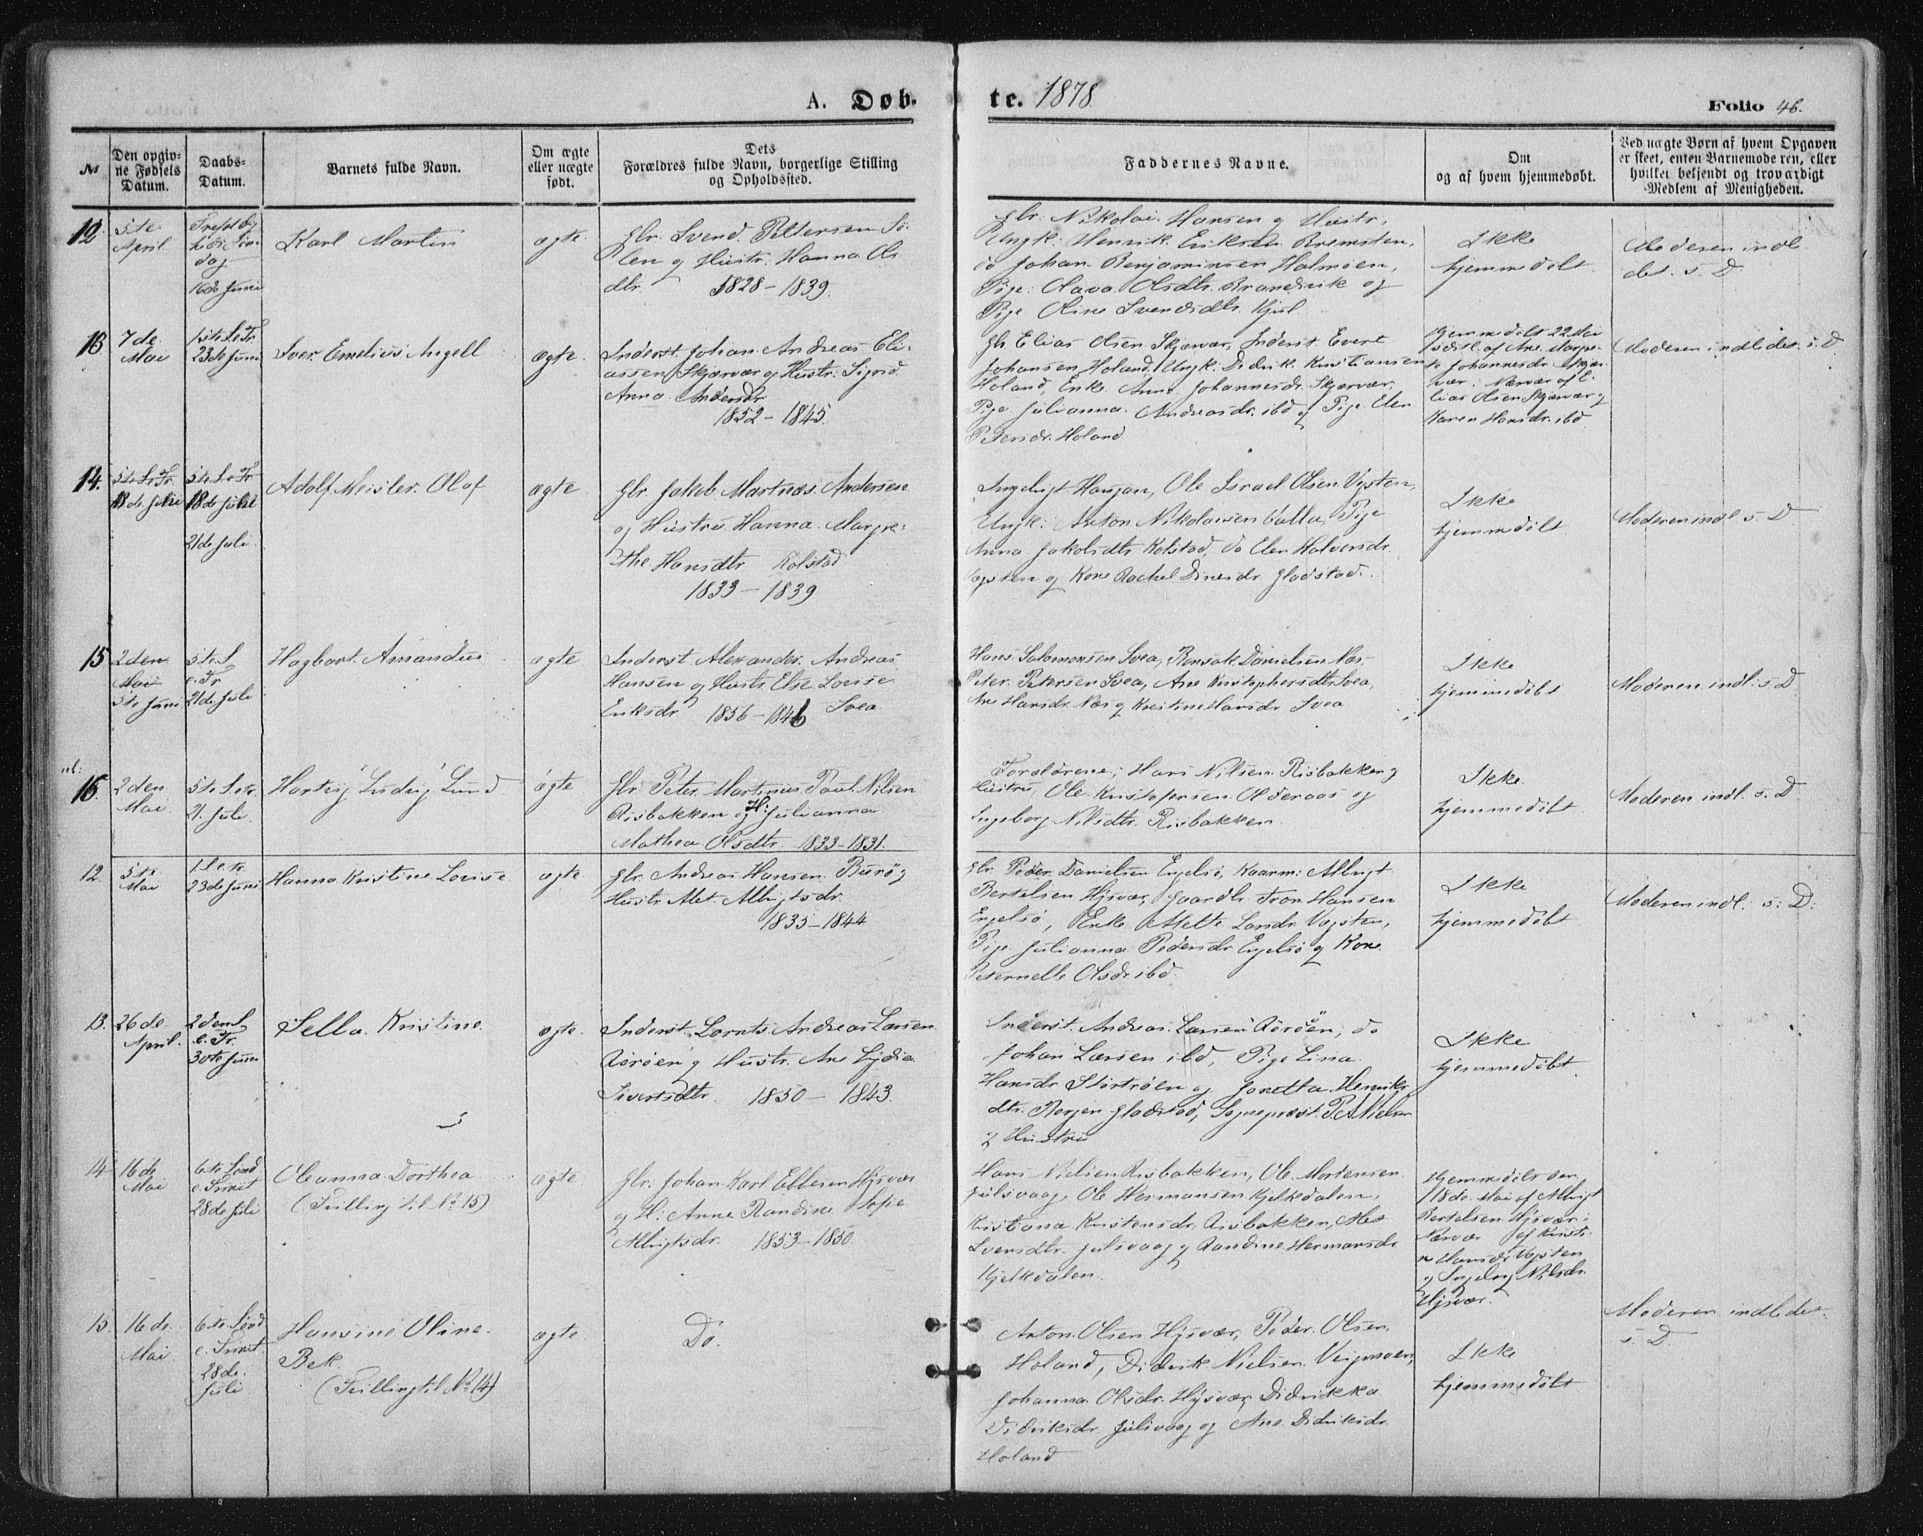 A. Døb-
te. 1878
Folio 46.
No
Den opgiv-
ne Fødsels
Datum.
Daabs-
Datum.
Barnets fulde Navn.
Om ægte
eller uægte
født.
Dets
Forældres fulde Navn, borgerlige Stilling
og Opholdssted.
Faddernes Navne.
Om
og af hvem hjemmedøbt.
Ved uægte Børn af hvem Opgaven
er skeet, enten Barnemoderen, eller
hvilket bekjendt og troværdigt
Medlem af Menigheden.
12
5te
April.
16de Juni
Karl Martin
ægte
Gbr. Svend Pettersen Sö-
len og Hustr: Hanna Ols
dtr. 1828 - 1839.
Gbr: Nikolai Hansen og Hustr,
Ungk: Henrik Eriksen Bremsten,
do Johan Benjaminsen Holmöen,
Pige: Olava Olsdtr. Brandvik og
Pige Oline Svendsdtr. Kjul
Ikke
hjemmedøbt
Moderen indle
det. s. D
13
7de
Mai
1ste S.e.Tr
23de Juni
Iver Emelius Angell
ægte
Inderst. Johan Andreas Eli-
assen Skjærvær og Hustr: Sigrid
Anna Andersdr
1852 - 1845.
Gb Elias Olsen Skjærvær, Inderst Evert
Johansen Holand, Ungk: Didrik Kristiansen
Holand, Enke Anne Johannesdr. Skjærvær,
Pige Julianna Andreasdr. ibd og Pige Elen
Petersdr. Holand.
Hjemmedøbt 22 Mai
af Ane Margre-
te Johannesdr. Skjær-
vær i Nærvær af E-
lias Olsen Skjærvær og
Maren Hansdr. ibd.
Moderen indledet. s. D
14.
5te S.e.Tr.
18de Juli
5te S.e.Tr
18de Juli
21de Juli
Adolf Meisler Olaf
ægte
Gbr. Jakob Martnæs Andersen
og Hustru Hanna Margre-
the Hansdtr Kolstad
1833 - 1839
Ingebrigt Hansen, Ole Israel Olsen Vegsten,
Ungk: Anton Nikolaisen Valla, Pige
Anna Jakobsdtr Kolstad, do Elen Halversdr.
Vegsten og Kone Rachel Dinesdr. Gladstad.
Ikke
hjemmedøbt
Moderen indl. s. D
15
2den
Mai
5te Juni
5te S.
e. Tr
21de Juli
Hagbart Amandus
ægte
Inderst Alexander Andreas
Hansen og Hustr. Else Lovise
Eriksdr 1856 - 1846 Svea
Hans Salomonsen Svea, Bonsak Danielsen Næs,
Peter Petersen Svea, Ane Kristophersdtr Svea,
Ane Hansdr. Næs og Kristine Hansdr. Svea
Ikke
hjemmedøbt
Moderen indl. s. D
16.
2den
Mai
5te S.e.tr.
21. Juli
Hartvig Ludvig Lund
ægte
Gbr. Peter Martinus Paul Nilsen
Risbakken og H: Julianna
Mathea Olsdtr. 1833-1831.
Forældrene; Hans Nilsen Risbakken og
Hustru, Ole Kristofersen Olderaas og
Ingeborg Nilsdtr. Risbakken.
Ikke
hjemmedøbt
Moderen indl. s. D
12.
5te
Mai
1 S.e.tr.
23de Juni
Hanna Kristine Lovise
ægte
Gbr. Andreas Hansen Burö og
Hustr. Alet Albrigtsdr.
1835 - 1844
Gbr. Peder Danielsen Engelsö, Kaarm: Albrigt
Bertelsen Hysvær, Gaardbr. Tron Hansen
Engelsö, Enke Alette Larsdr. Vegsten,
Pige Julianna Pedersdr. Engelsö og Kone
Peternelle Olsdr ibd.
Ikke
hjemmedøbt
Moderen indl: s. D:
13.
26de
April.
2den S.
e. Tr.
30te Juni
Sella Kristine
ægte
Inderst. Lornts Andreas Larsen
Röröen og Hustr. Ane Lydia
Sivertsdtr. 1850 - 1843.
Inderst. Andreas Larsen Röröen, do
Johan Larsen ibd, Pige Lina
Hansdr Störtröen og Jonetta Henriks
dtr. Gladstad, Sognepræst P. Nielsen
og Hustru
Ikke
hjemmedøbt.
14
16de
Mai
6te Sönd
e. Trinit
28de Juli
Oleanna Dorthea
(Tvilling til No 15)
ægte
Gbr. Johan Karl Ebbesen Hysvær
og H: Anne Randine Sofie
Albrigtsdr. 1853 - 1850.
Hans Nielsen Risbakken, Ole Mortensen
Julsvaag, Ole Hermansen Kjelkdalen,
Kristiana Kristensdr. Risbakken, Alet
Svensdtr. Julsvaag og Randine Hermansdr
Kjelkdalen.
Hjemmedøbt den
18de Mai af Albrigt
Bertelsen Hysvær i
Nærvær af Kristi-
ne Hansdr Vegsten
og Ingeborg Nilsdr.
Hysvær.
15.
16de
Mai.
6te Sönd
e. Trinit.
28de
Juli
Hansine Oline
Bek.
(Tvilling til No 14)
ægte
Do.
Anton Olsen Hysvær, Peder Olsen
Holand, Didrik Nielsen Veigmoen,
Johanna Olsdr. Hysvær, Didrikka
Didriksdr Julsvaag og Ane Didriksdr.
Holand
Ikke
hjemmedøbt
Moderen indledet
s. D.